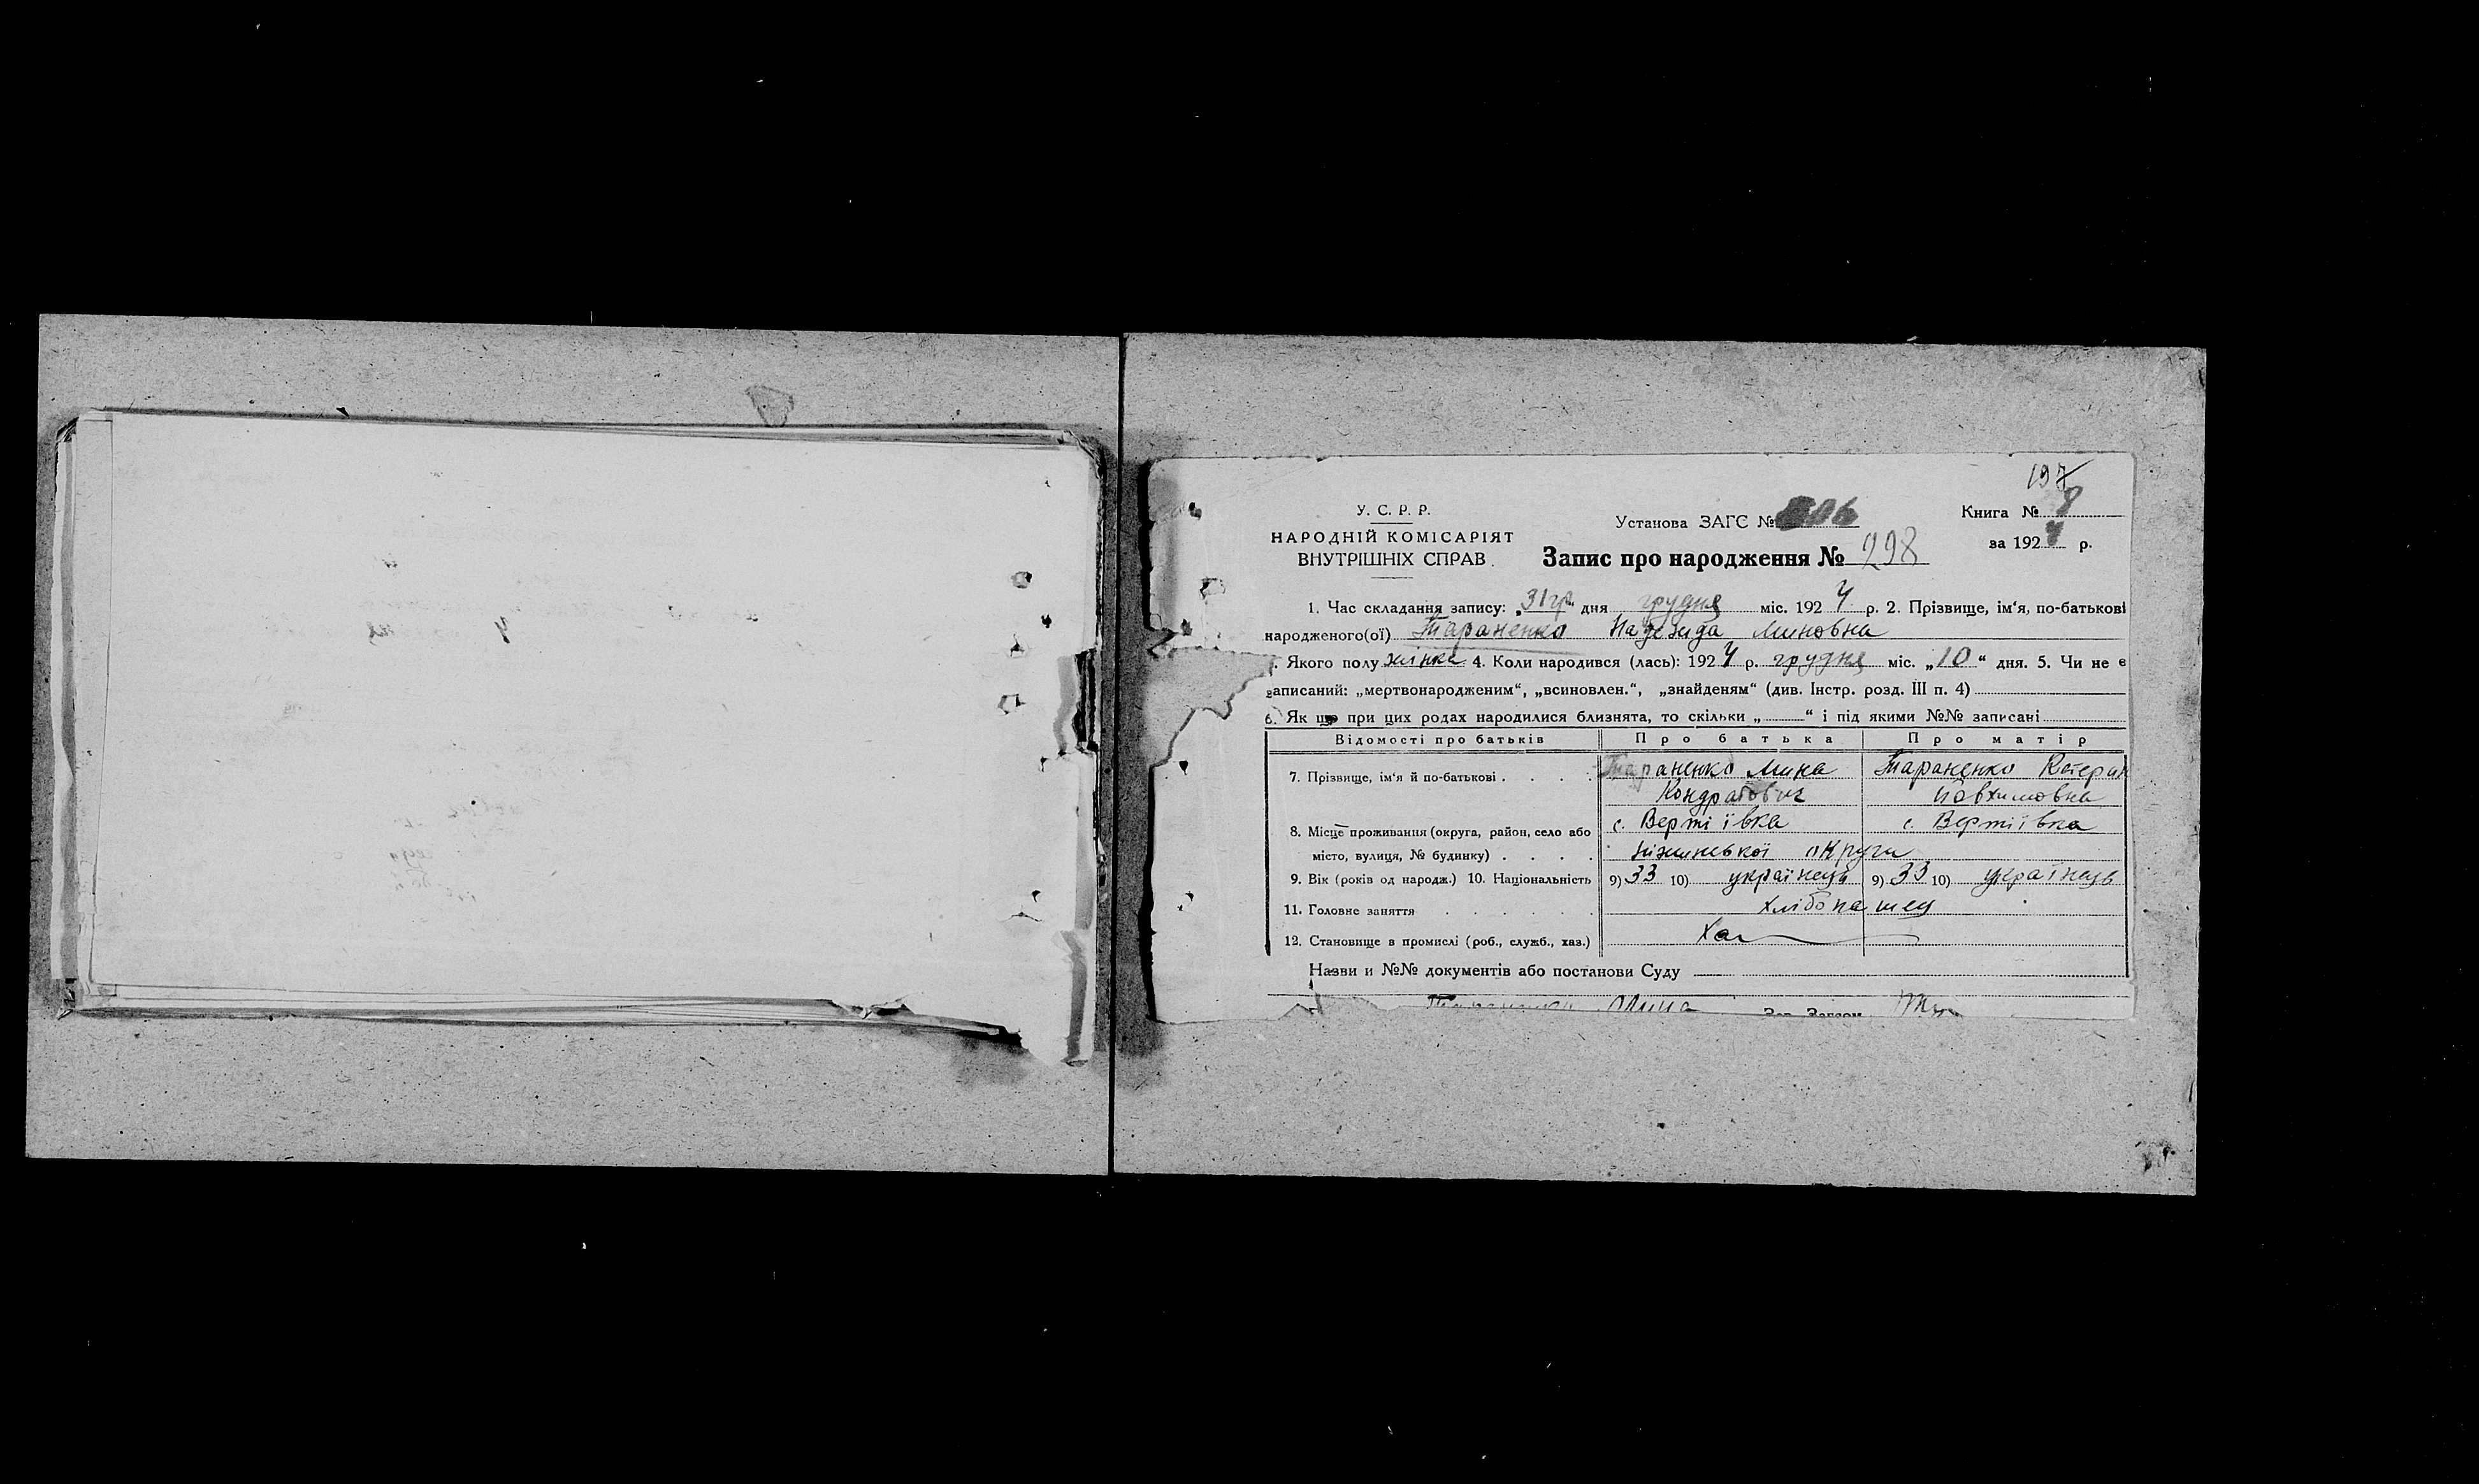 197
8
У. С. Р. Р.
НАРОДНІЙ КОМІСАРІЯТ
ВНУТРІШНІХ СПРАВ.
Установа ЗАГС № 06
Запис про народження № 298
Книга №
за 1924 р.
1. Час складання запису: „31гр." дня грудня міс. 1924 р. 2. Прізвище, ім'я, по-батькові
народженого(ої) Тараненко Надежда Миновна
Якого полу жінка 4. Коли народився (лась): 1924 р. грудня міс. „10" дня. 5. Чи не є
записаний: „мертвонародженим", „всиновлен.", „знайденям" (див. Інстр. розд. III п. 4)
6. Як що при цих родах народилися близнята, то скільки „ " і під якими №№ записані
Відомості про батьків Про батька Про матір
7. Прізвище, ім'я й по-батькові . . . . Тараненко Мина Тараненко Катерин
Кондратович
8. Місце проживання (округа, район, село або с. Вертіївка с. Вертіївка
місто, вулиця, № будинку) . . . . Ніжинської округи
9. Вік (років од народж.) 10. Національність 9) 33 10) українець 9) 33 10) українець
11. Головне заняття . . . . . . хлібопашец
12. Становище в промислі (роб., служб., хаз.) Хаз
Назви и №№ документів або постанови Суду
Мина Зав. Загсом